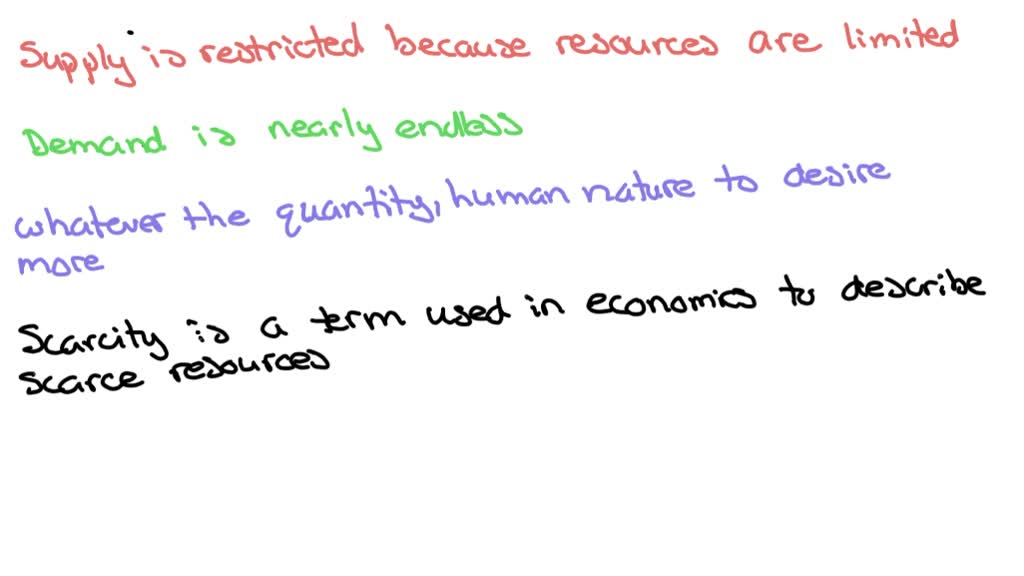 Supply is restricted because resources are limited
Demand is nearly endless
whatever the quantity, human nature to desire
more
Scarcity is a term used in economics to describe
scarce resources